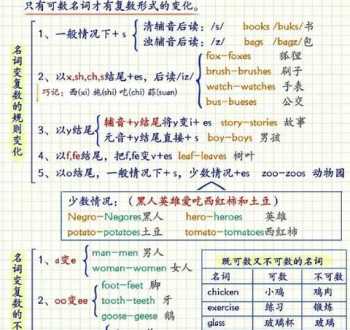 只有可数名词才有复数形式的变化。
名词变复数的规则变化
1、一般情况下+ s
清辅音后读: /s/ books /buks/书
浊辅音后读: /z/ bags /bagz/包
2、以x,sh,ch,s结尾+es, 后读/iz/
巧记: 西(xi) 施(shi) 吃(chi) 蒜(suan)
fox-foxes 狐狸
brush-brushes 刷子
watch-watches 手表
bus-bueses 公交
3、以y结尾
辅音+y结尾将y变i+ es story-stories 故事
元音+y结尾直接+ s boy-boys 男孩
4、以f,fe结尾, 把f,fe变v+es leaf-leaves 树叶
5、以o结尾, 一般情况下+ s, 少数情况+es zoo-zoos 动物园
少数情况: (黑人英雄爱吃西红柿和土豆)
Negro-Negores黑人 hero-heroes 英雄
potato-potatoes土豆 tomato-tomatoes西红柿
名词变复数的不
1、a变e
man-men 男人
woman-women 女人
2、oo变ee
foot-feet 脚
tooth-teeth 牙
goose-geese 鹅
既可数又不可数的名词
名词 可数 不可数
chicken 小鸡 鸡肉
exercise 练习 锻炼
glass 玻璃杯 玻璃